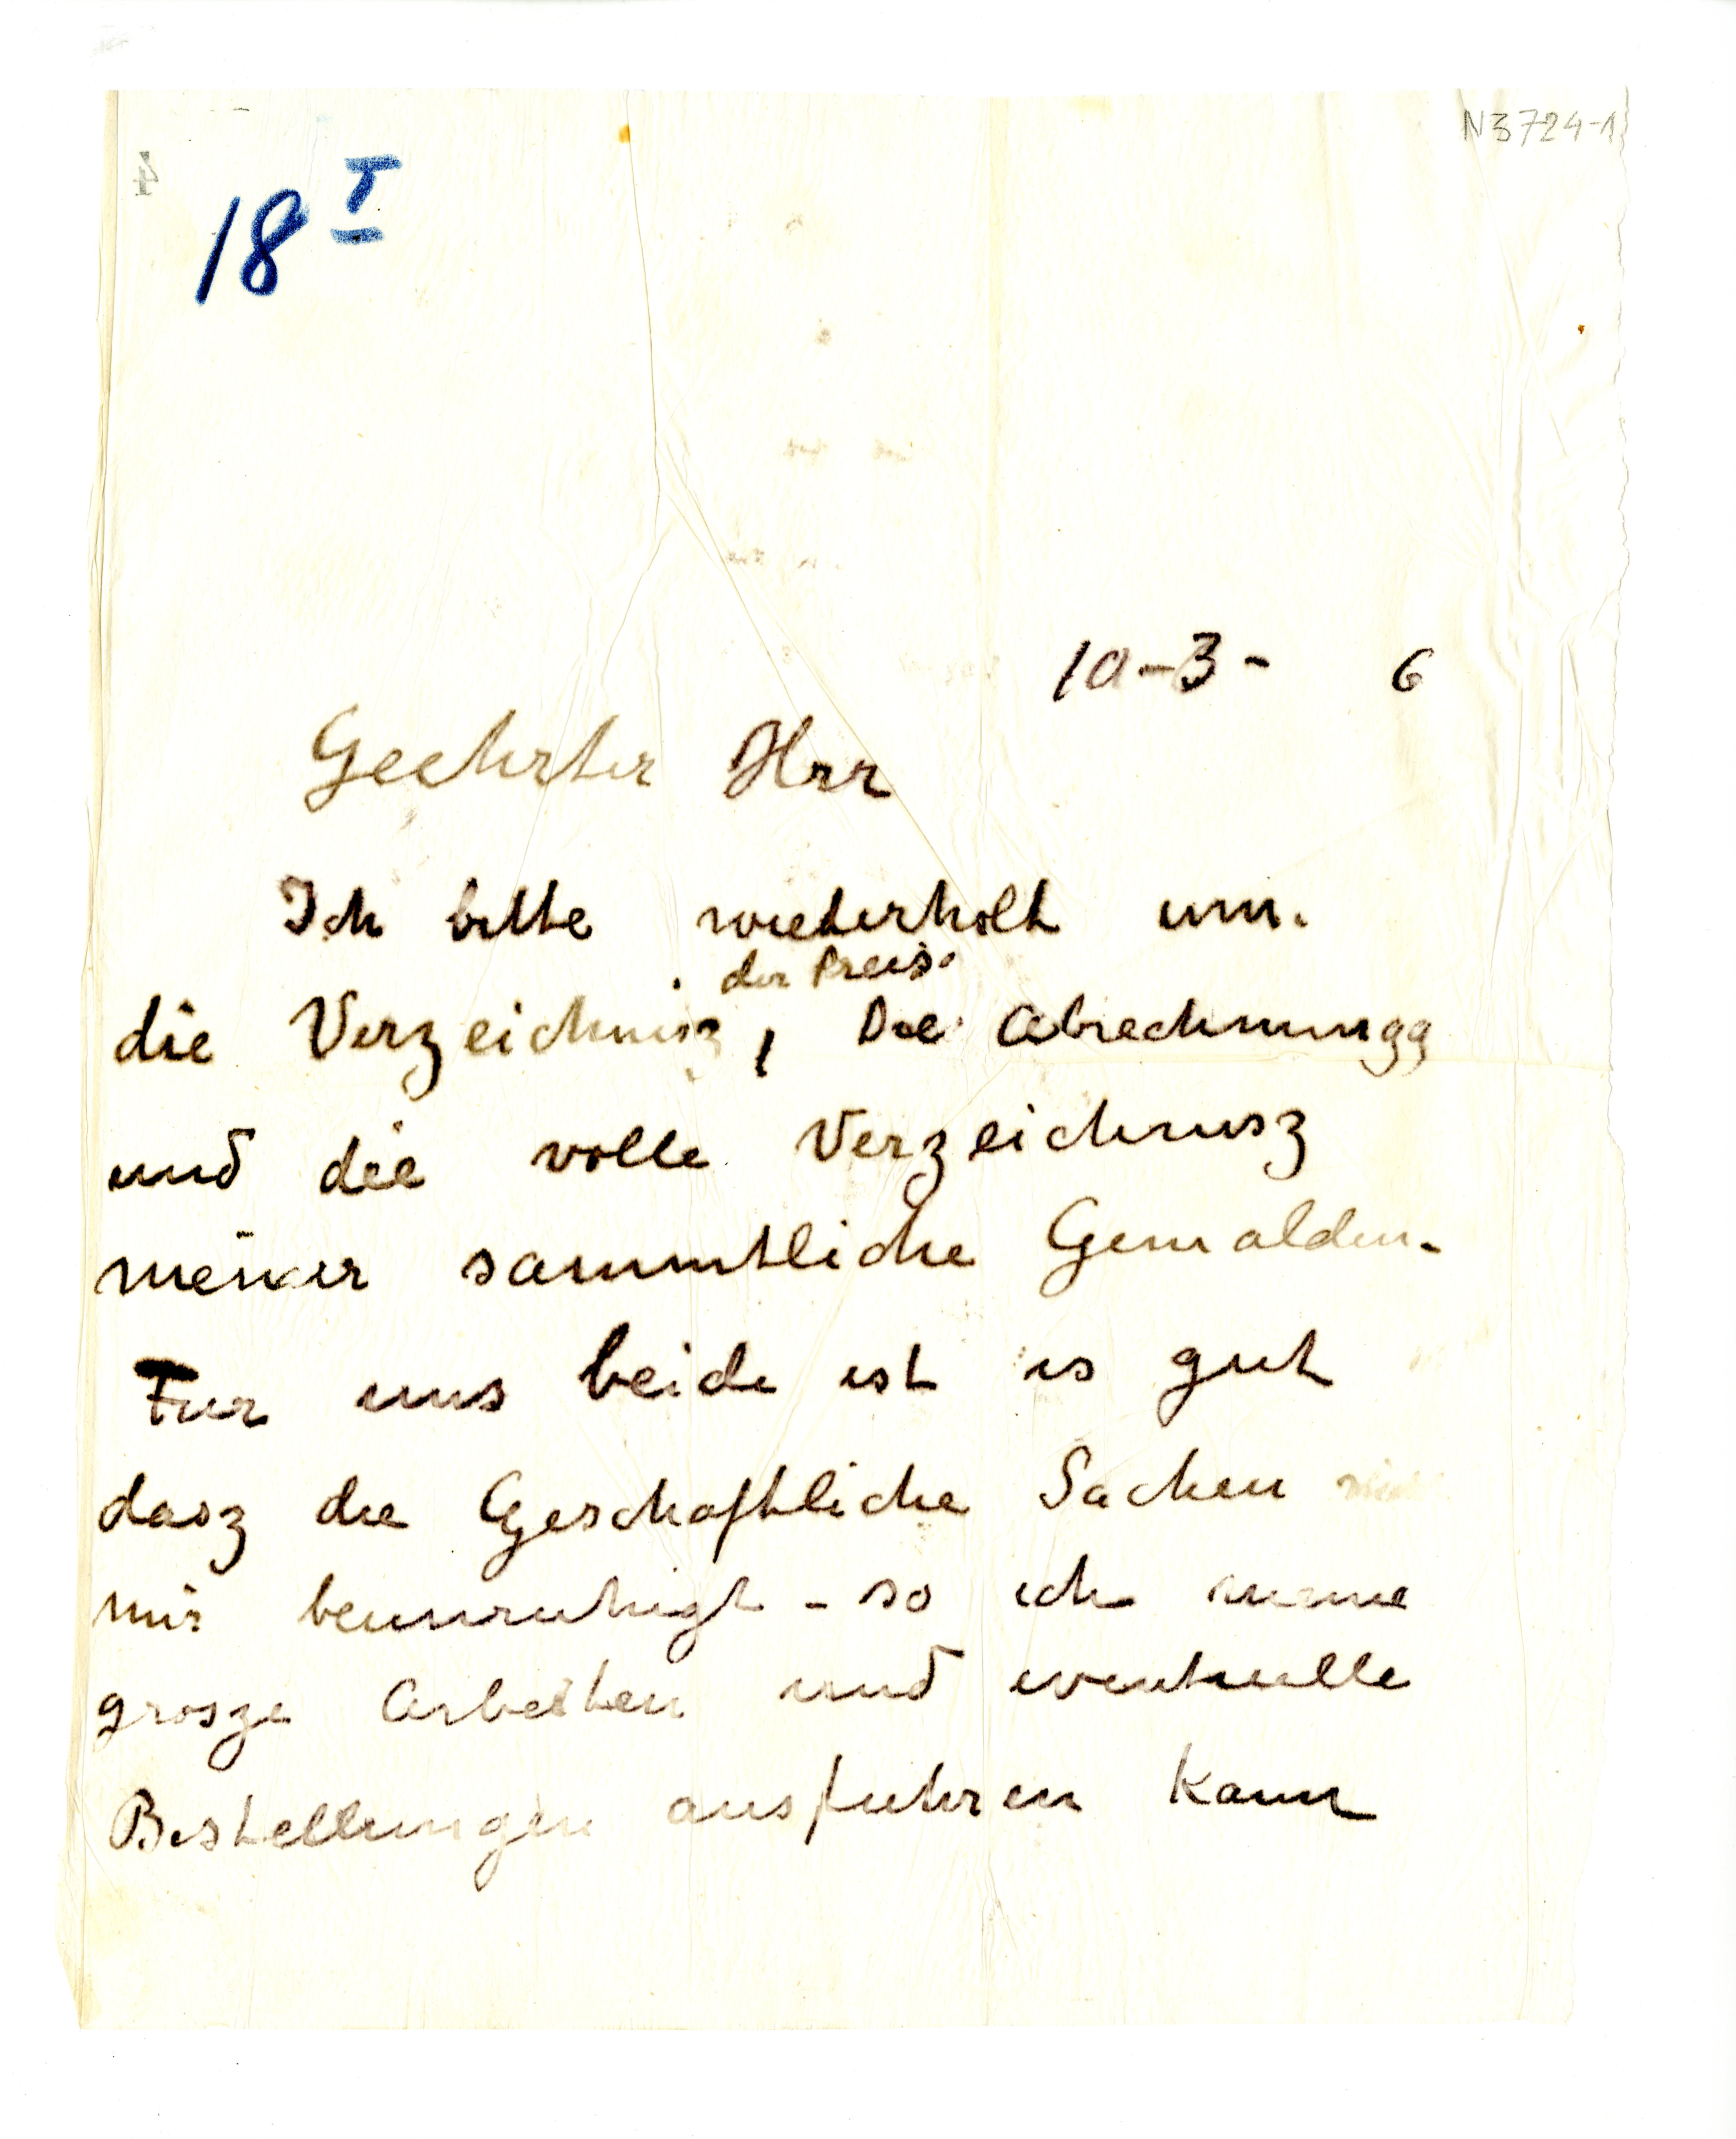 N3724-1
4
18 I
10-3- 6
Geehrter Hrr
Ich bitte wieterholt um.
der Preis.
die Verzeichnisz, Die Abrechnungg
und die volle Verzeichnisz
meiner sammtliche Gemalden.
Fur uns beide ist es gut
dasz die Geschaftliche Sachen nicht
mir beunruhigt - so ich meine
grosze Arbeiten und eventuelle
Bestellungen ausfuhren kann